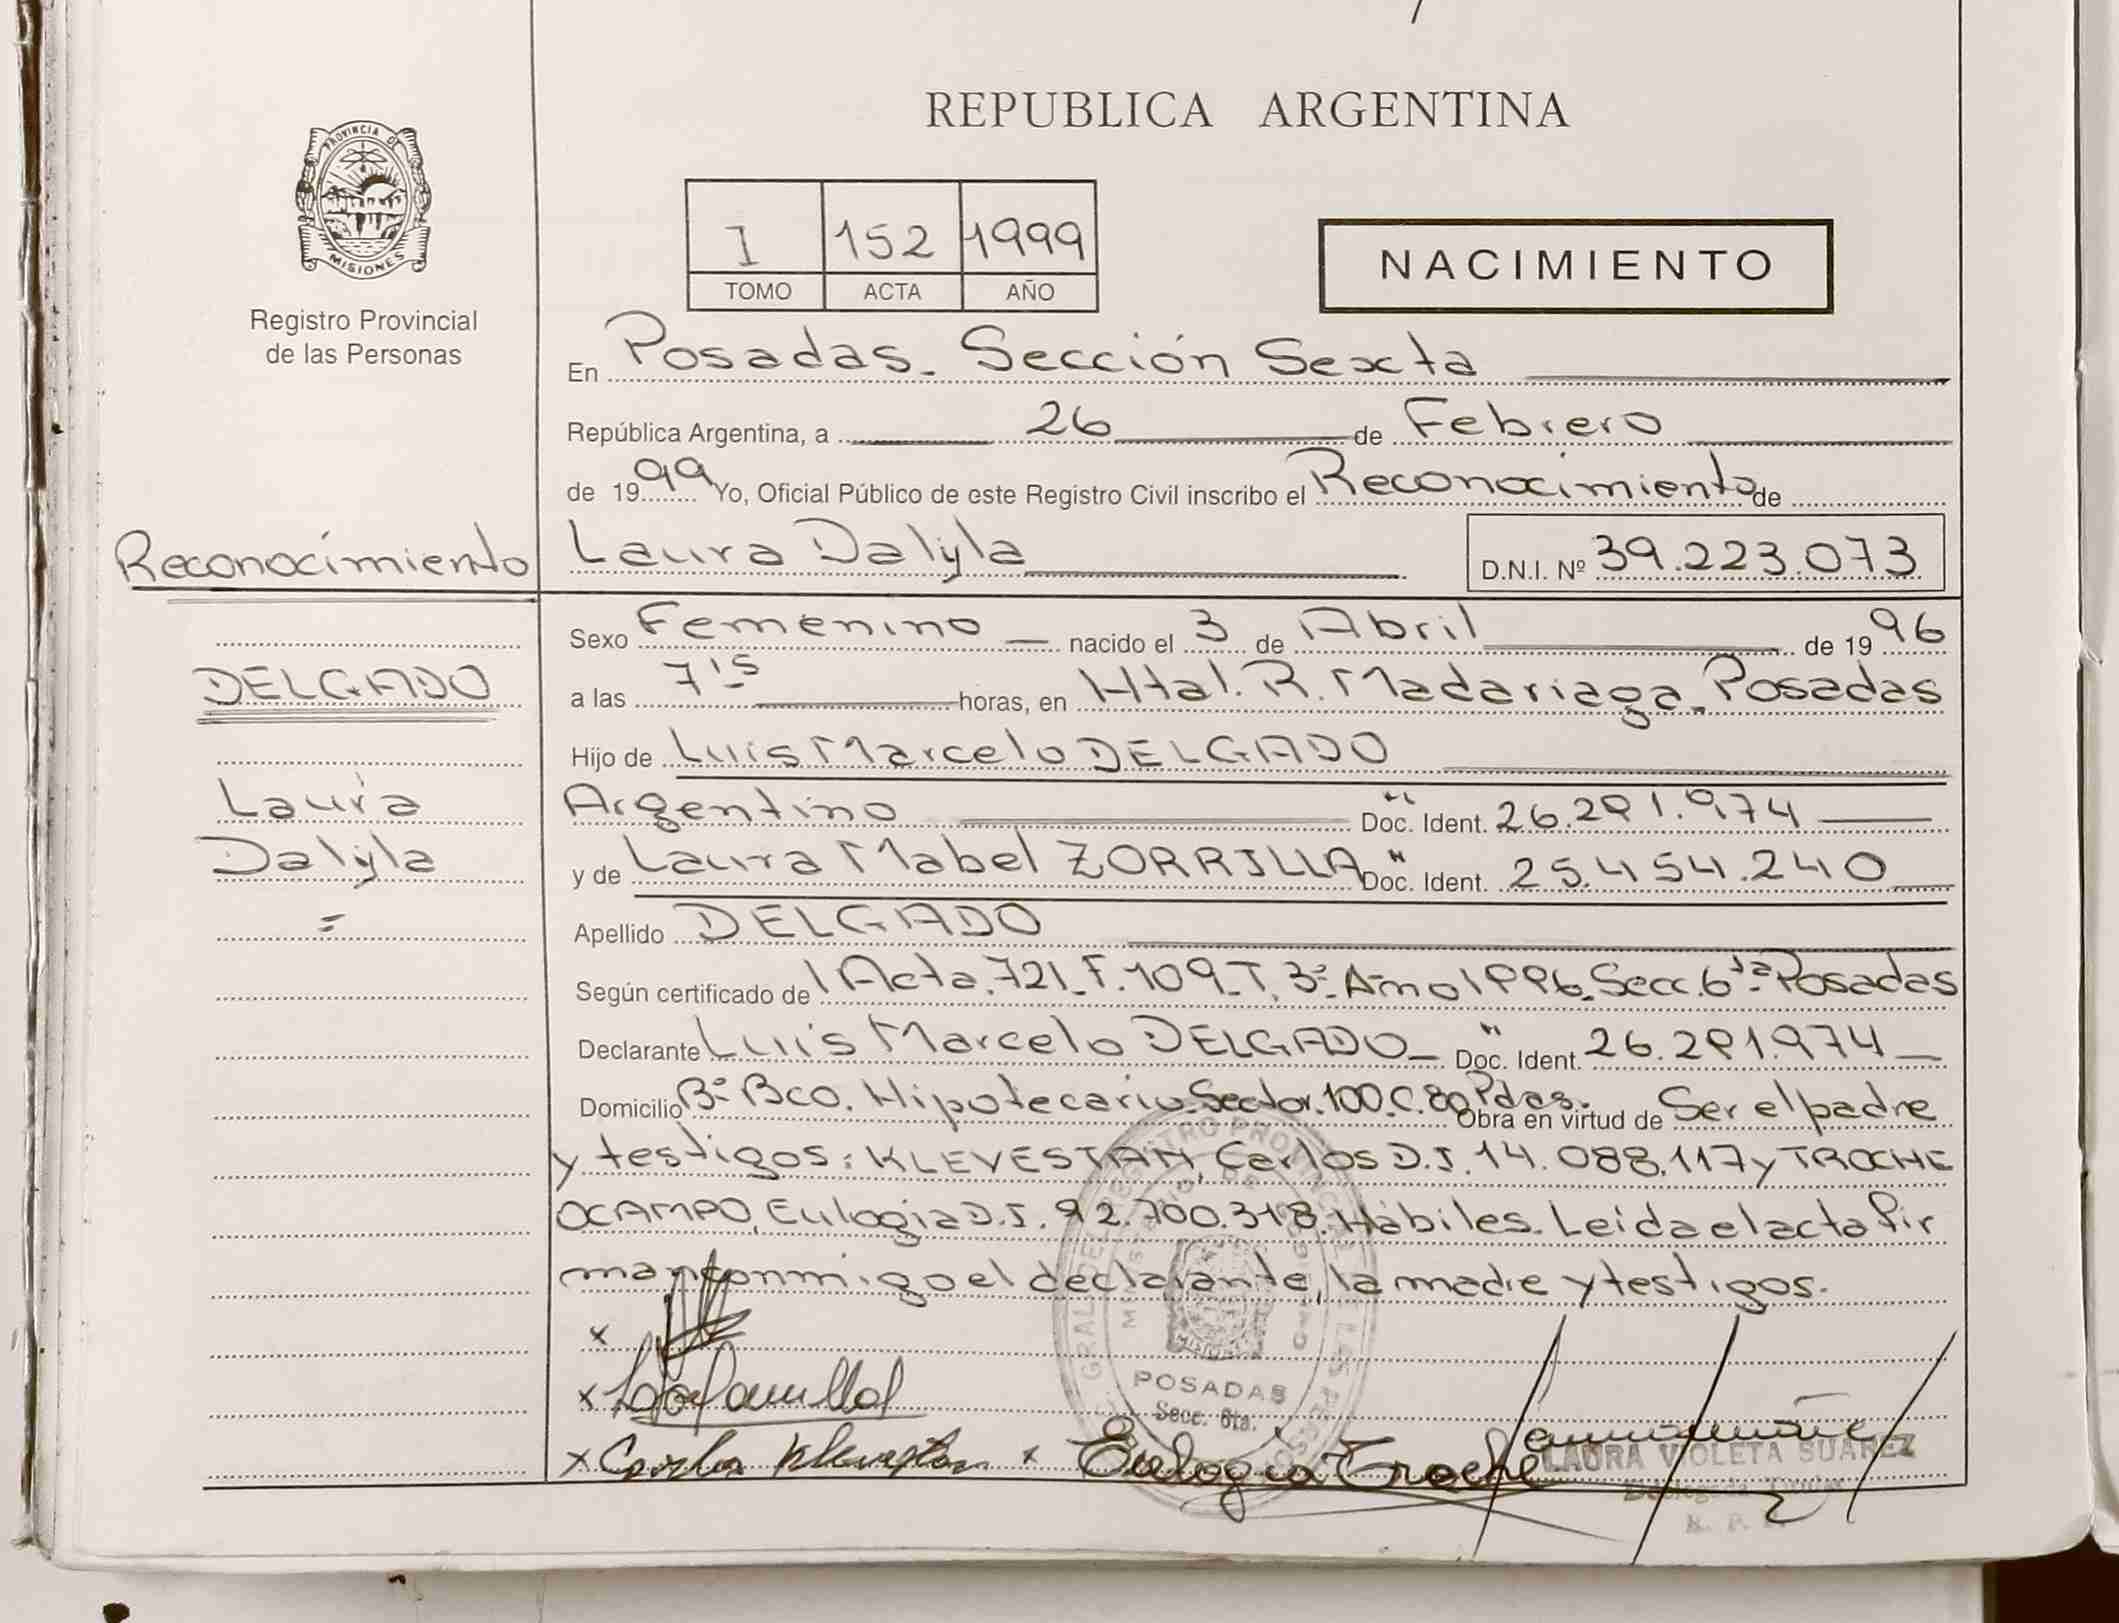 REPUBLICA ARGENTINA
PROVINCIA DE MISIONES
Registro Provincial
de las Personas
I 152 1999
TOMO ACTA AÑO
NACIMIENTO
En Posadas. Sección Sexta
República Argentina, a 26 de Febrero
de 1999 Yo, Oficial Público de este Registro Civil inscribo el Reconocimiento de
Reconocimiento
Laura Dalyla D.N.I. Nº 39.223.073
Sexo Femenino nacido el 3 de Abril de 1996
DELGADO
a las 7'15 horas, en Htal. R. Madariaga. Posadas
Hijo de Luis Marcelo DELGADO
Laura
Argentino Doc. Ident. 26.291.974
Dalyla
y de Laura Mabel ZORRILLA Doc. Ident. 25.454.240
Apellido DELGADO
Según certificado de Acta.721_F.109_T.3º_Año 1996_Secc.6ta_Posadas
Declarante Luis Marcelo DELGADO_ Doc. Ident. 26.291.974
Domicilio Bº Bco. Hipotecario.Sector.100.C.80 Pdas. Obra en virtud de Ser el padre
y testigos: KLEVESTAN, Carlos D.I. 14.088.117 y TROCHE
OCAMPO, Eulogia D.I. 92.700.318. Hábiles. Leida el acta fir
man conmigo el declarante, la madre y testigos.
x
x
x Carlos x Eulogia Troche
POSADAS
Secc. 6ta.
LAURA VIOLETA SUAREZ
Delegada Titular
R. P.